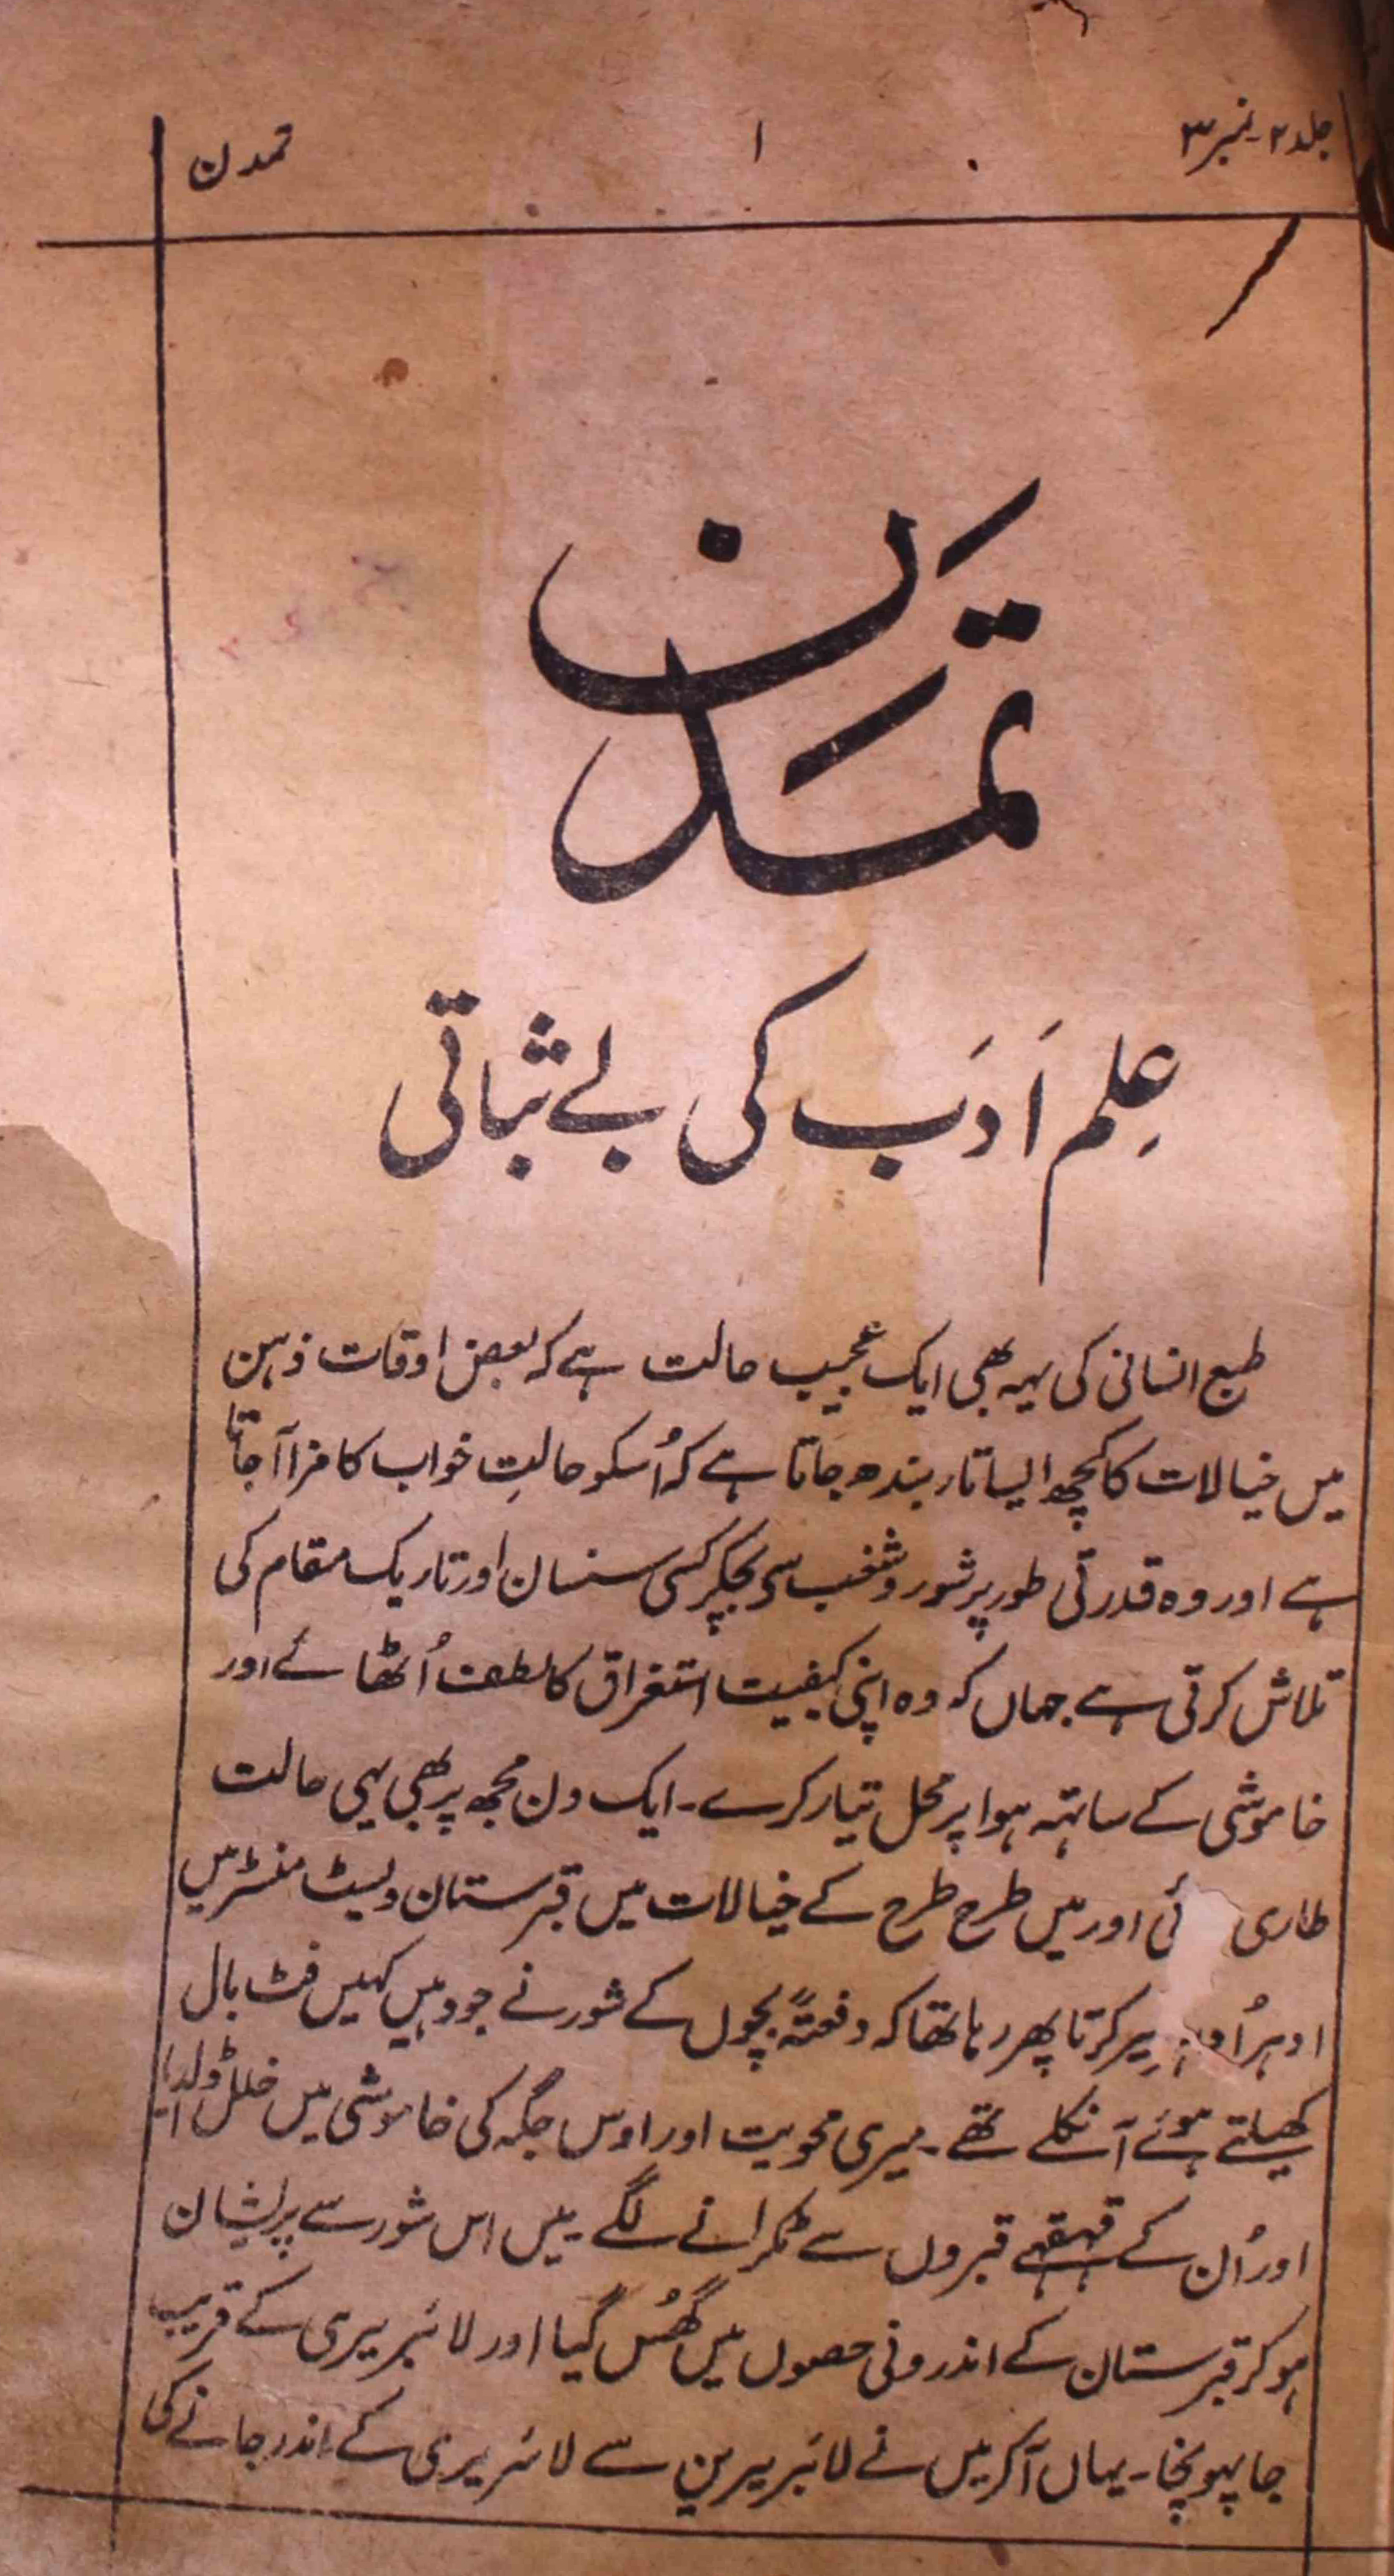 جلد ۲۔ نمبر ۳
۱
تمدن
تمدَّن
عِلم اَدَب کی بے ثباتی
طبع انسانی کی یہہ بھی ایک عجیب حالت ہے کہ بعض اوقات ذہن
میں خیالات کا کچھ ایسا تار بندھ جاتا ہے کہ اُسکو حالتِ خواب کا مزا آجاتا
ہے اور وہ قدرتی طور پر شور و شغب سے بچکر کسی سنسان اور تاریک مقام کی
تلاش کرتی ہے جہاں کہ وہ اپنی کیفیت استغراق کا لطف اُٹھائے اور
خاموشی کے ساتہہ ہوا پر محل تیار کرے۔ ایک دن مجھ پر بھی یہی حالت
طاری ئی اور میں طرح طرح کے خیالات میں قبرستان ویسٹ منسٹر میں
ادہر سیر کرتا پھر رہا تھا کہ دفعتہً بچوں کے شور نے جو وہیں کہیں فٹ بال
کھیلتے ہوئے آنکلے تھے۔ میری محویت اور اوس جگہ کی خاموشی میں خلل ڈالدیا
اور اُن کے قہقہے قبروں سے ٹکرانے لگے۔ میں اس شور سے پریشان
ہو کر قبرستان کے اندرونی حصوں میں گھُس گیا اور لائبریری کے قریب
جا پہونچا۔ یہاں آکر میں نے لائبریرین سے لائبریری کے اندر جانے کی